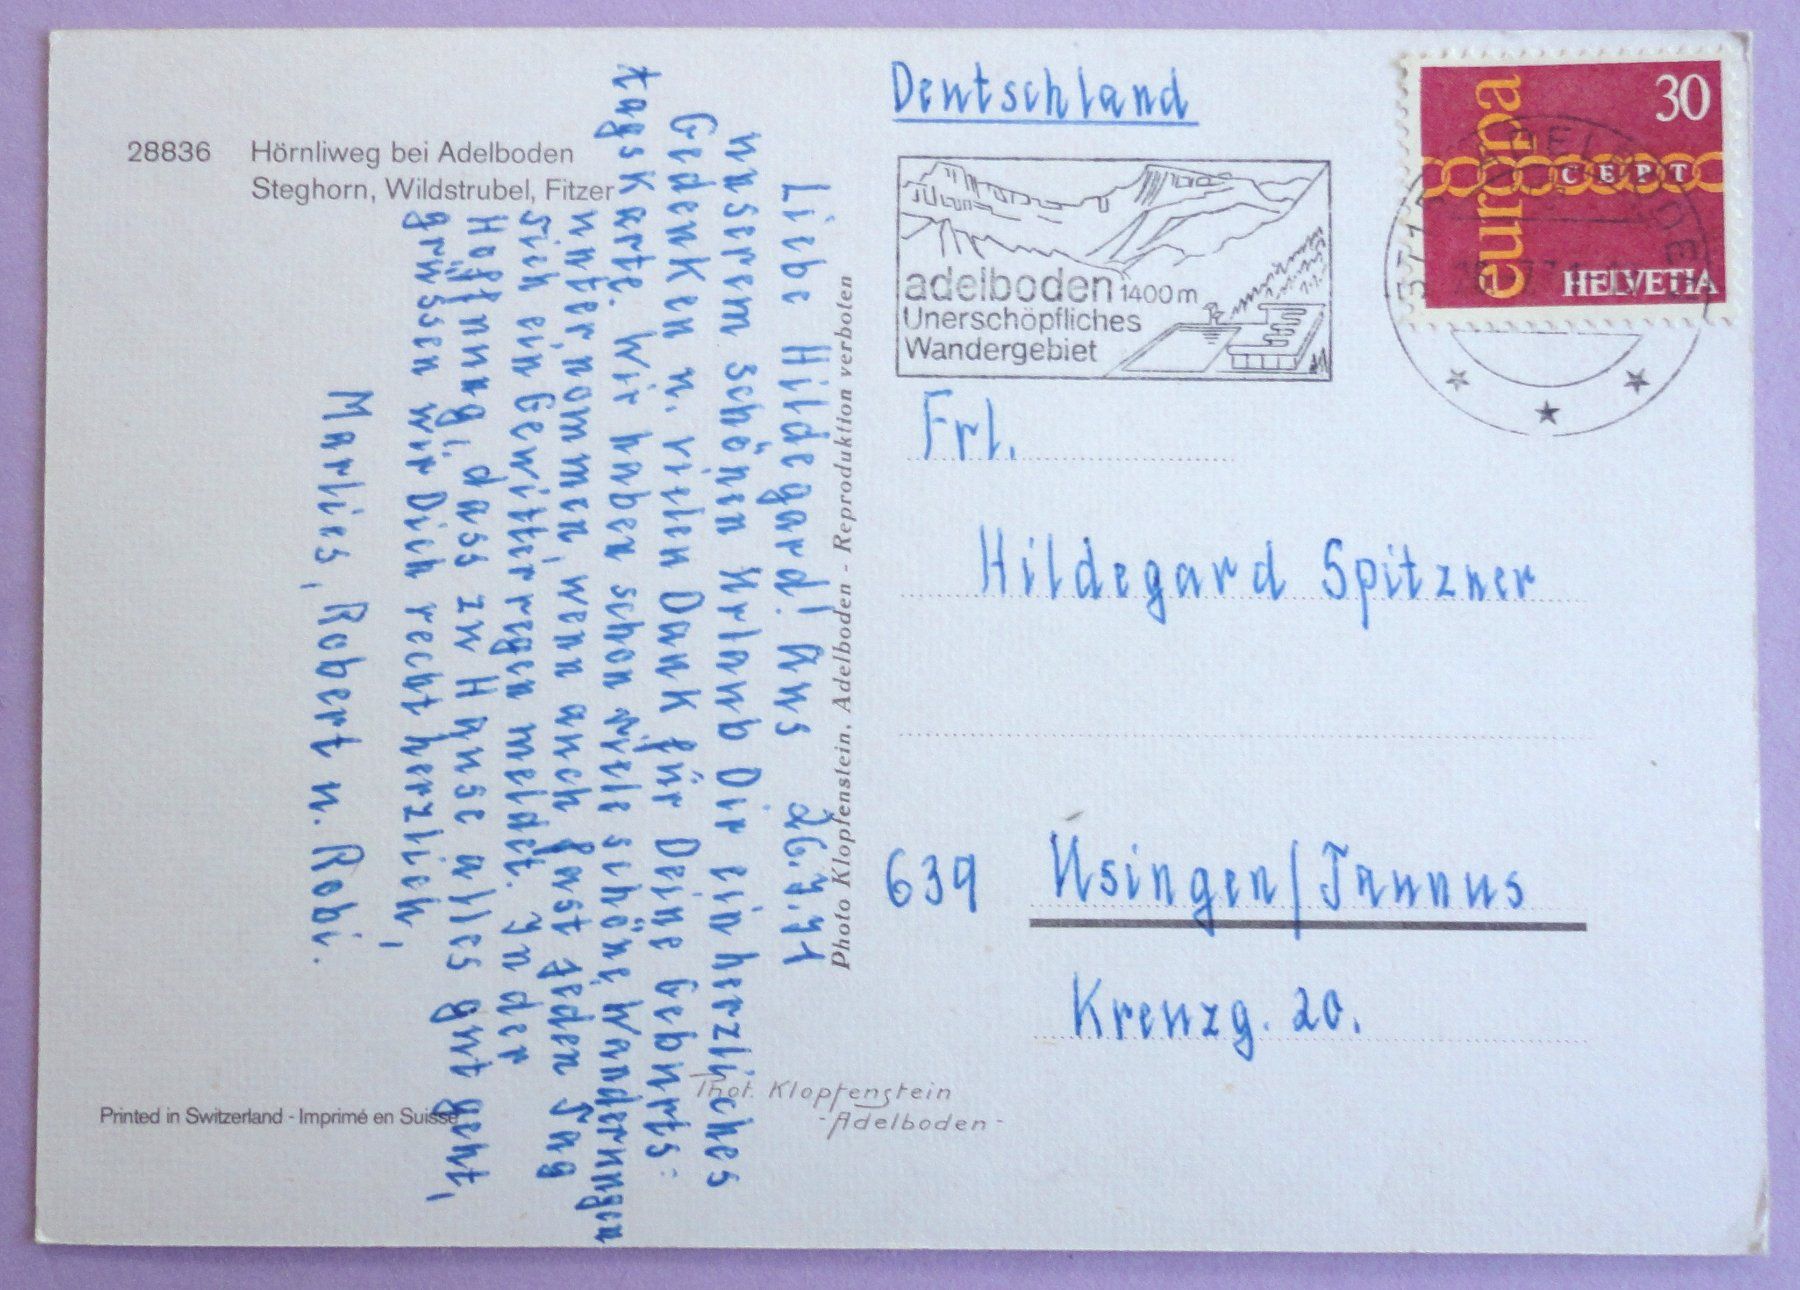 28836 Hörnliweg bei Adelboden
Steghorn, Wildstrubel, Fitzer
Liebe Hildegard! Aus 26.7.71
unserem schönen Urlaub Dir ein herzliches
Gedenken u. vielen Dank für Deine Geburts=
tagskarte. Wir haben schon viele schöne Wanderungen
unternommen, wenn auch fast jeden Tag
sich ein Gewitterregen meldet. In der
Hoffnung, dass zu Hause alles gut geht,
grüssen wir Dich recht herzlich,
Marlies, Robert u. Robi.
Printed in Switzerland - Imprimé en Suisse
Photo Klopfenstein, Adelboden - Reproduktion verboten
Phot. Klopfenstein
- Adelboden -
Deutschland
adelboden 1400m
Unerschöpfliches
Wandergebiet
europa
30
CEPT
HELVETIA
ADELBODEN
Frl.
Hildegard Spitzner
639 Usingen/Taunus
Kreuzg. 20.